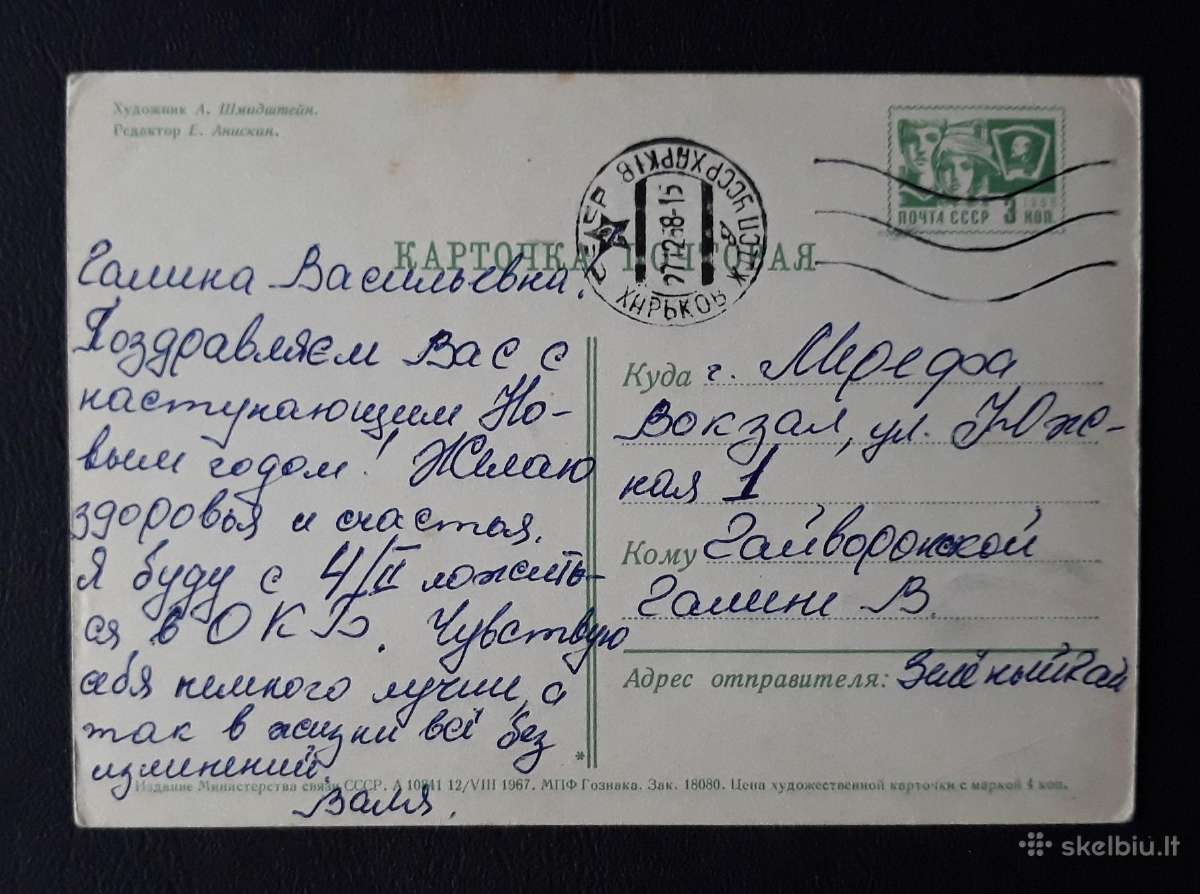 Художник А. Шмидштейн.
Редактор Е. Анискин.
ПОЧТА СССР 3 коп.
1966
УССР ХАРКІВ
27 12 68-15
ХАРЬКОВ
КАРТОЧКА ПОЧТОВАЯ
Галина Васильевна.
Поздравляем Вас с
наступающим Но-
вым годом! Желаю
здоровья и счастья.
Я буду с 4/II ложить-
ся в ОКБ. Чувствую
себя немного лучше, а
так в жизни всё без
изменений.
Валя.
Куда г. Мерефа
Вокзал, ул. Юж-
ная 1
Кому Гайворонской
Галине В.
Адрес отправителя: Зелёный Гай
*
Издание Министерства связи СССР. А 10841 12/VIII 1967. МПФ Гознака. Зак. 18080. Цена художественной карточки с маркой 4 коп.
skelbiu.lt